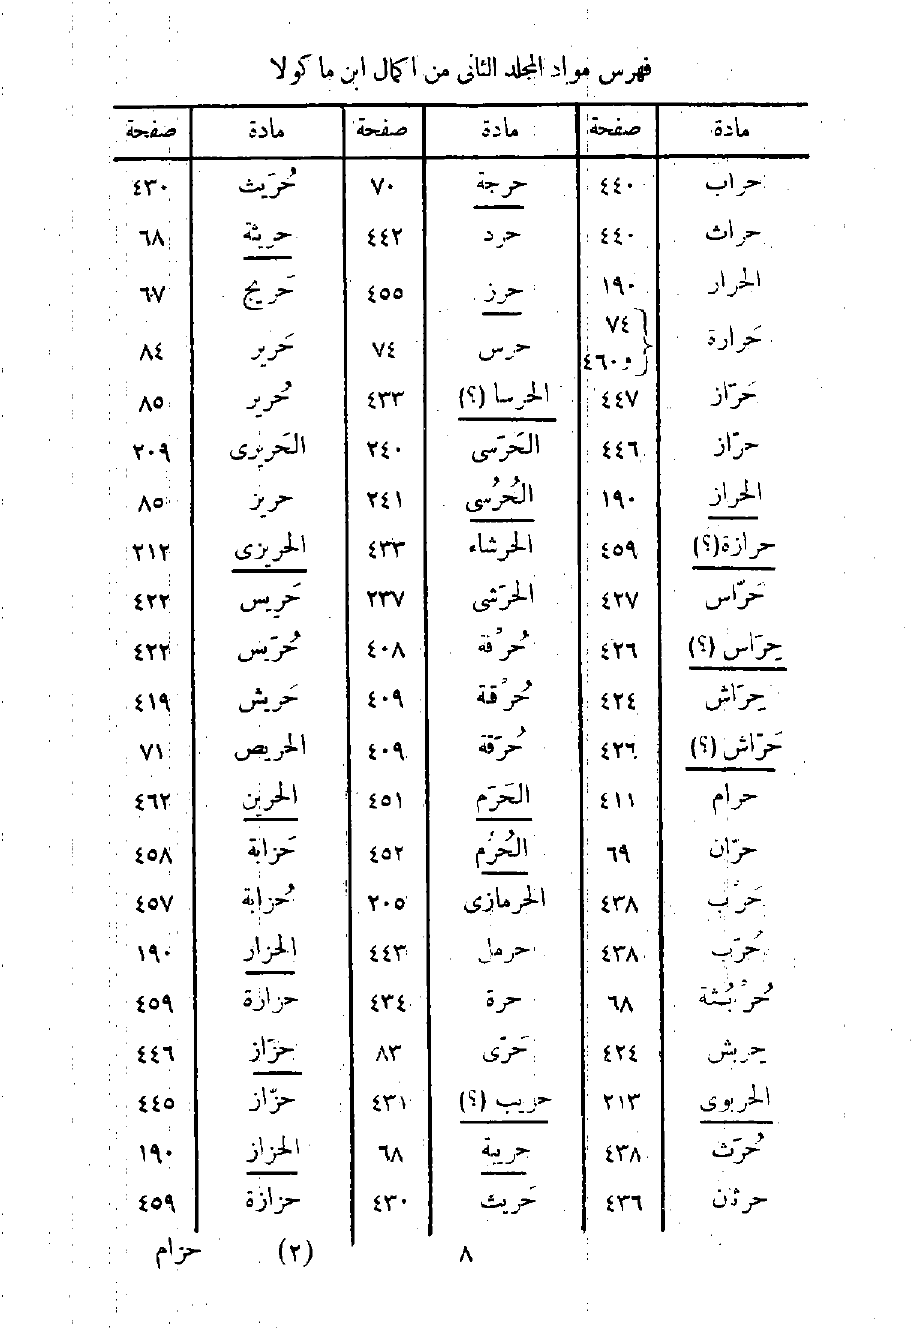 فهرس مواد المجلد الثانى من اكمال ابن ماكولا
مادة صفحة مادة صفحة مادة صفحة
حراب ٤٤٠ حرجة ٧٠ حُرَيث ٤٣٠
حراث ٤٤٠ حرد ٤٤٢ حريثة ٦٨
الحرار ١٩٠ حرز ٤٥٥ حَريج ٦٧
حَرارة ٧٤ و٤٦٠ حرس ٧٤ حَرير ٨٤
حَرّاز ٤٤٧ الحرسا (؟) ٤٣٣ حُرير ٨٥
حرّاز ٤٤٦ الحَرَسى ٢٤٠ الحَريرى ٢٠٩
الحراز ١٩٠ الحُرُسى ٢٤١ حريز ٨٥
حرازة(؟) ٤٥٩ الحرشاء ٤٣٣ الحريزى ٢١٢
حَرّاس ٤٢٧ الحَرَشى ٢٣٧ حَريس ٤٢٢
حِرَاس (؟) ٤٢٦ حُرْقة ٤٠٨ حُرَيس ٤٢٢
حِرَاش ٤٢٤ حُرْقة ٤٠٩ حَريش ٤١٩
حَرّاش (؟) ٤٢٦ حُرَقة ٤٠٩ الحريص ٧١
حرام ٤١١ الحَرَم ٤٥١ الحرين ٤٦٢
حرّان ٦٩ الحُرُم ٤٥٢ حَزابة ٤٥٨
حَرْب ٤٣٨ الحرمازى ٢٠٥ حُزابة ٤٥٧
حُرَب ٤٣٨ حرمل ٤٤٣ الحزار ١٩٠
حُرْبُثة ٦٨ حرة ٤٣٤ حزارة ٤٥٩
حربش ٤٢٤ حَرّى ٨٣ حزَاز ٤٤٦
الحربوى ٢١٣ حريب (؟) ٤٣١ حزّاز ٤٤٥
حُرَث ٤٣٨ حريبة ٦٨ الحزاز ١٩٠
حرثن ٤٣٦ حَريث ٤٣٠ حزازة ٤٥٩
٨ (٢) حزام